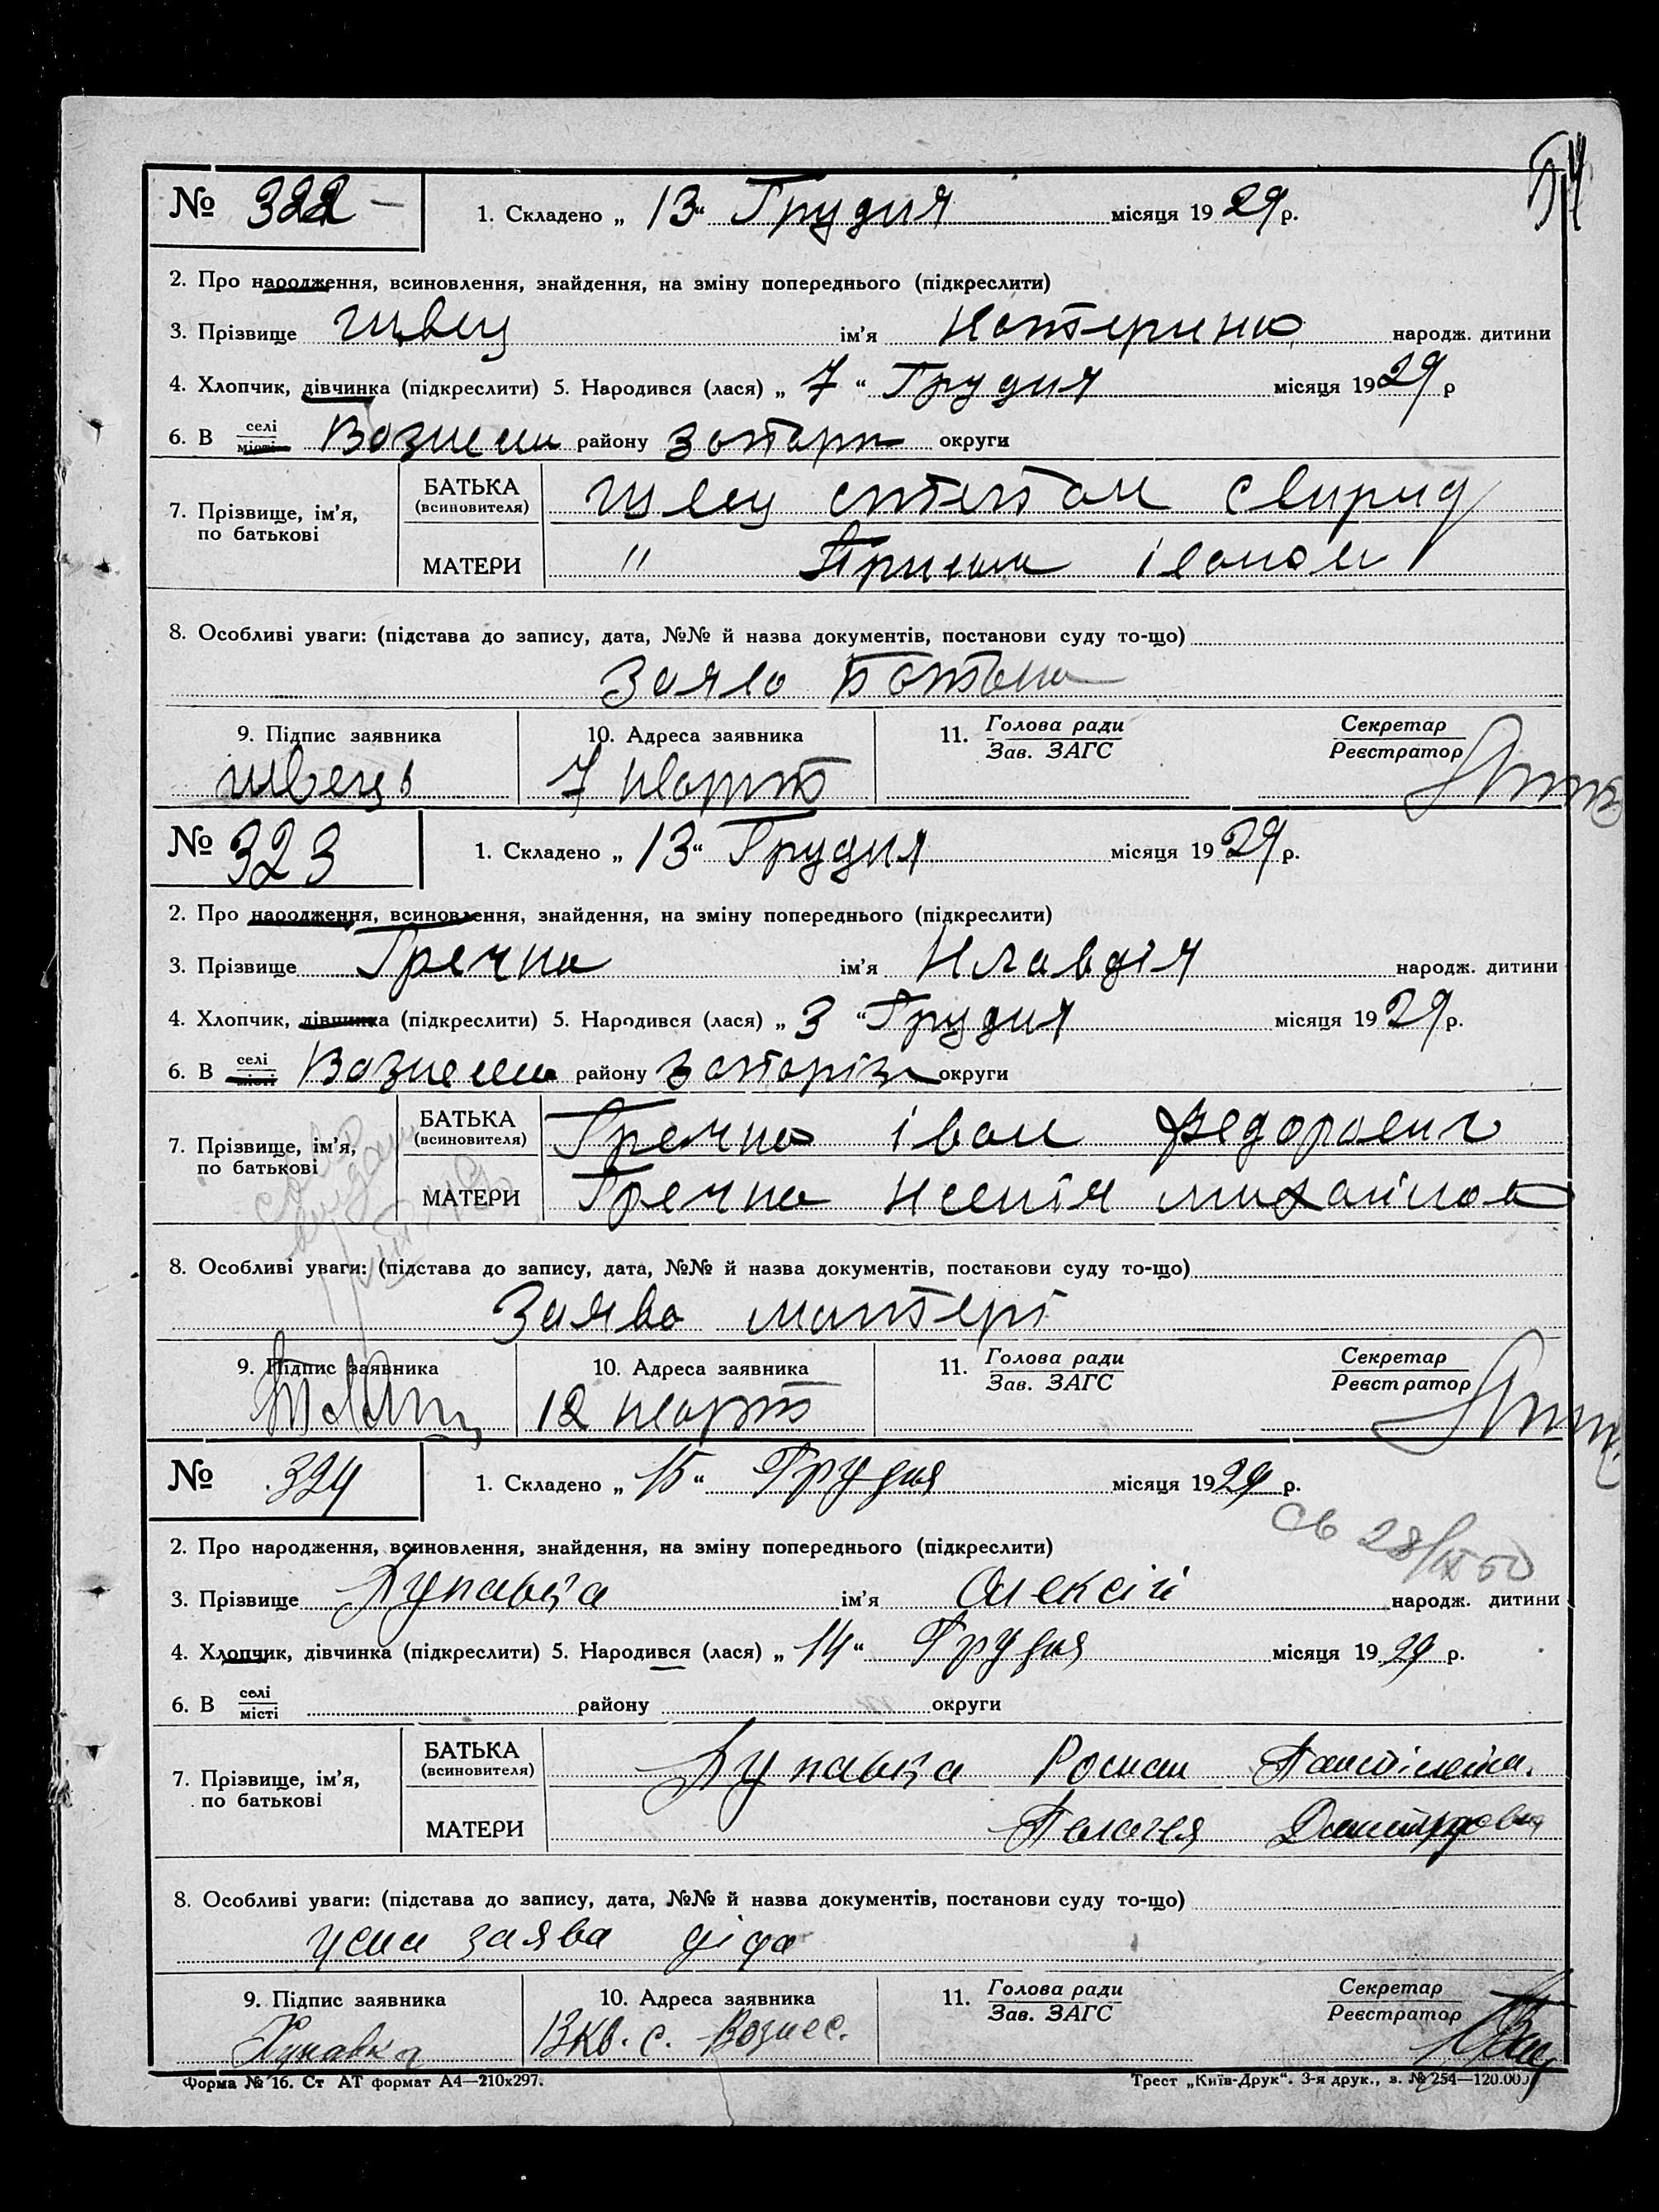 № 322 1. Складено „ 13 “ Грудня місяця 19 29 р.
2. Про народження, всиновлення, знайдення, на зміну попереднього (підкреслити)
3. Прізвище Швец ім’я Катерина народж. дитини
4. Хлопчик, дівчинка (підкреслити) 5. Народився (лася) „ 7 “ Грудня місяця 19 29 р
6. В селі місті Вознесен району Запоріз округи
7. Прізвище, ім’я, по батькові
БАТЬКА (всиновителя) Швец Степан Свирид
МАТЕРИ " Іванов
8. Особливі уваги: (підстава до запису, дата, №№ й назва документів, постанови суду то-що)
Заява Батька
9. Підпис заявника 10. Адреса заявника 11. Голова ради Зав. ЗАГС Секретар Реєстратор
Швець 7 кварт
№ 323 1. Складено „ 13 “ Грудня місяця 19 29 р.
2. Про народження, всиновлення, знайдення, на зміну попереднього (підкреслити)
3. Прізвище Гречна ім’я Клавдія народж. дитини
4. Хлопчик, дівчинка (підкреслити) 5. Народився (лася) „ 3 “ Грудня місяця 19 29 р.
6. В селі місті Вознесен району Запоріз округи
7. Прізвище, ім’я, по батькові
БАТЬКА (всиновителя) Гречна Іван Федорович
МАТЕРИ Гречна Ксенія Михайлов
8. Особливі уваги: (підстава до запису, дата, №№ й назва документів, постанови суду то-що)
Заява матері
9. Підпис заявника 10. Адреса заявника 11. Голова ради Зав. ЗАГС Секретар Реєстратор
12 кварт
№ 324 1. Складено „ 15 “ Грудня місяця 19 29 р.
св 28/IX 50
2. Про народження, всиновлення, знайдення, на зміну попереднього (підкреслити)
3. Прізвище Лупавка ім’я Олексій народж. дитини
4. Хлопчик, дівчинка (підкреслити) 5. Народився (лася) „ 14 “ Грудня місяця 19 29 р.
6. В селі місті району округи
7. Прізвище, ім’я, по батькові
БАТЬКА (всиновителя) Лупавка Роман
МАТЕРИ Пелагея Дмитровна
8. Особливі уваги: (підстава до запису, дата, №№ й назва документів, постанови суду то-що)
усна заява діда
9. Підпис заявника 10. Адреса заявника 11. Голова ради Зав. ЗАГС Секретар Реєстратор
Лупавка 13 кв. с. Вознес.
Форма № 16. Ст АТ формат А4—210х297. Трест „Київ-Друк“. 3-я друк., з. № 254—120.000